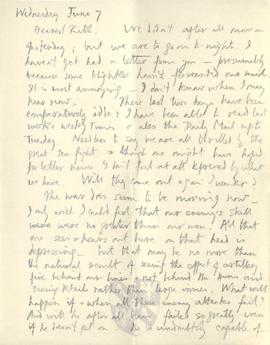 Wednesday June 7
Dearest Ruth, We didn't after all move on
yesterday; but we are to go on to night. I
haven't yet had a letter from you – presumably
because some blighter hasn't forwarded our mail.
It is most annoying – I don't know when I may
hear now. These last two days have been
comparatively idle: I have been able to read last
week's weekly Times & also the Daily Mail up to
Tuesday. Needless to say we are all thrilled by the
great sea fight & always one might have hoped
for better news I don't feel at all depressed by what
we have. Will they come out again I wonder?
The war does seem to be moving now – 
I only wish I could feel that our enemy's shell
were no greater than our own! All that
one sees & hears out here on that head is
depressing – but that may be no more than
the natural result of seeing the effect of artillery
fire behind our lines & not behind the
seeing details rather than large
. What will
happen if & when all these enemy attacks fail?
And will he after all have failed so greatly even
if he doesn't get on – he is undoubtedly capable of